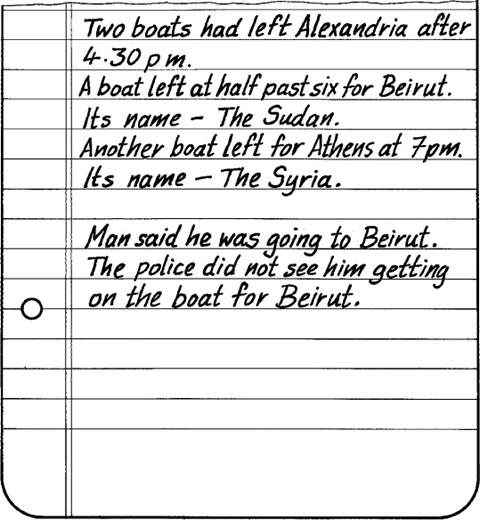 Two boats had left Alexandria after
4.30 pm.
A boat left at half past six for Beirut.
Its name – The Sudan.
Another boat left for Athens at 7pm.
Its name – The Syria.
Man said he was going to Beirut.
The police did not see him getting
on the boat for Beirut.